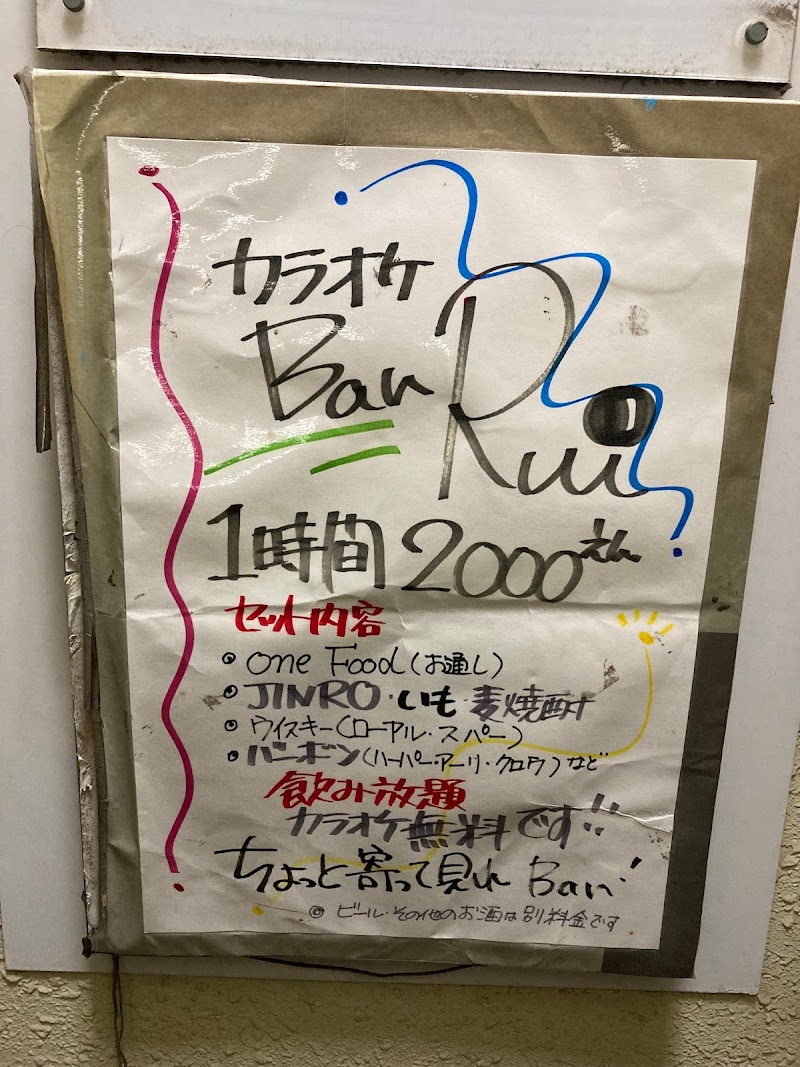 カラオケ
Ban Rui
1時間 2000えん
セット内容
◎ one Food(お通し)
◎ JINRO・いも 麦焼酎
◎ ウイスキー(ローアル・スパー)
◎ バーボン(ハーパー・アーリ・クロウ)など
飲み放題
カラオケ無料です!!
ちょっと寄って見れ Ban!
◎ ビール・その他のお酒は別料金です